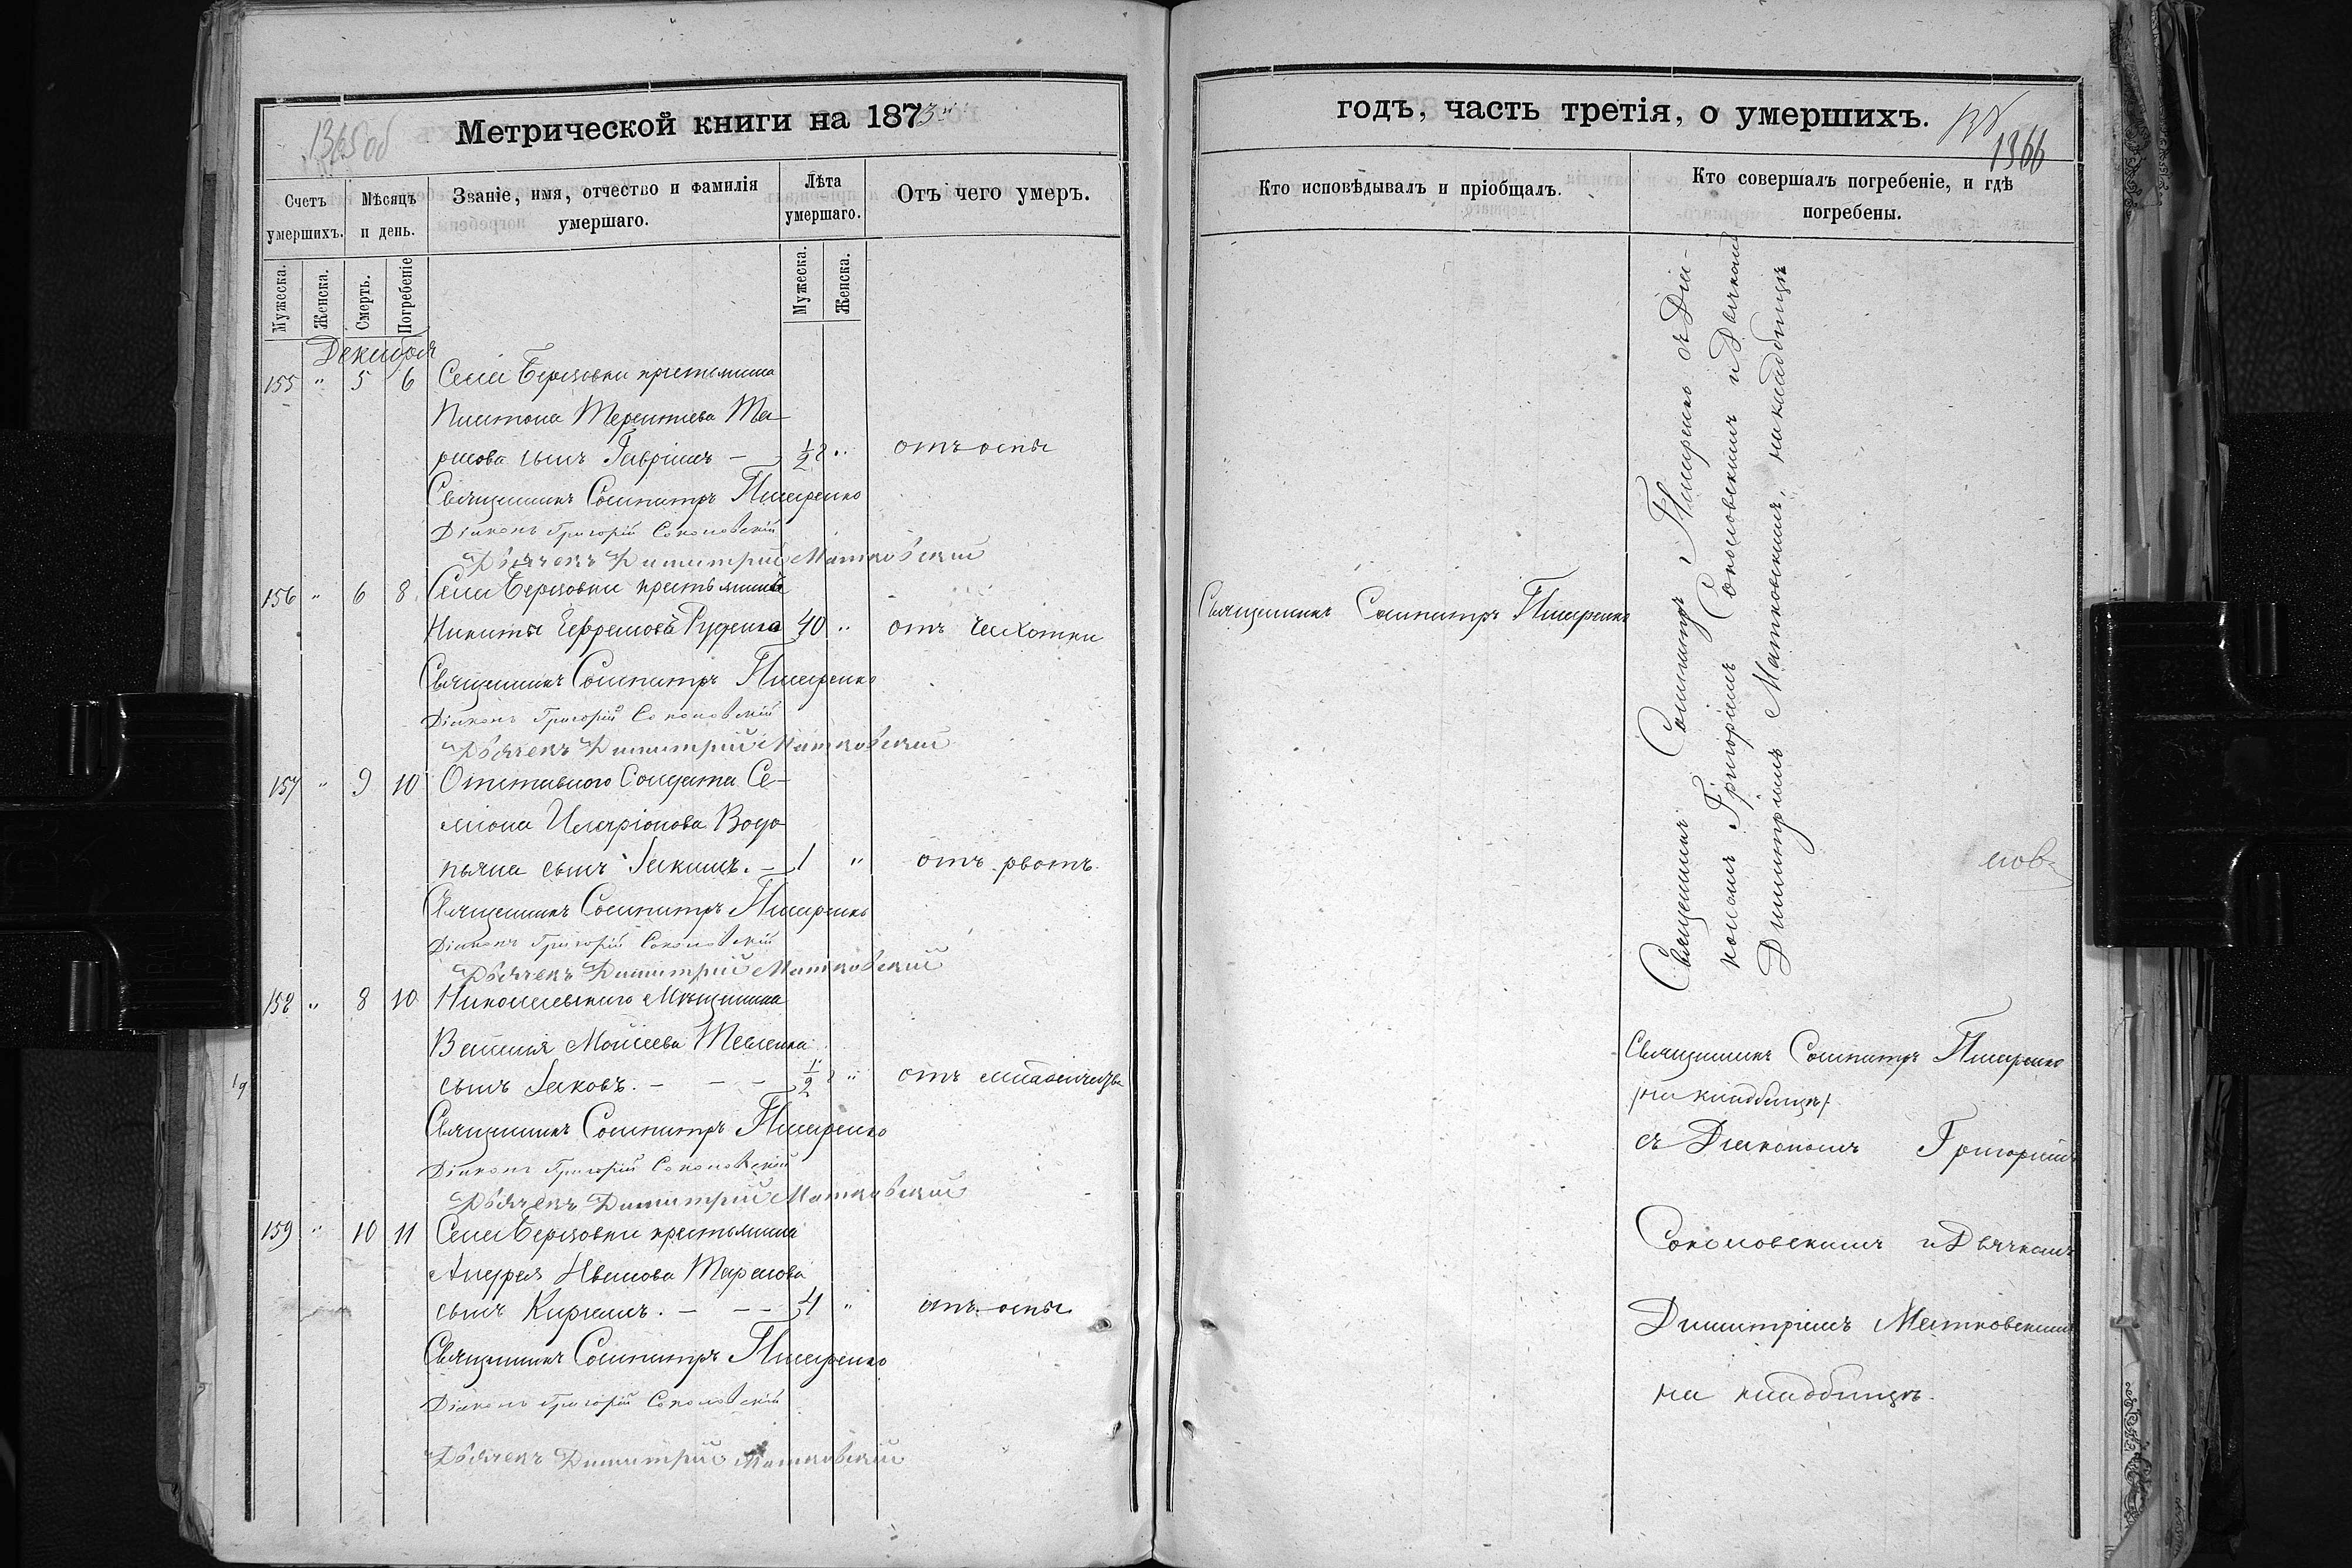 1365 об
Метрической книги на 1873
Счетъ умершихъ.
Мѣсяцъ и день.
Званіе, имя, отчество и фамилія умершаго.
Лѣта умершаго.
Отъ чего умеръ.
Мужеска.
Женска.
Смерть.
Погребеніе
Мужеска.
Женска.
Декабря
155 " 5 6 Села Березовки крестьянина
Платона Терентіева Та-
расова сынъ Гавріилъ — 1/2 " отъ оспы
Священникъ Сосипатръ Писаренко
Діаконъ Григорій Соколовскій
Дьячекъ Димитрій Матковскій
156 " 6 8 Села Березовки крестьянинъ
Никита Ефремовъ Руденко 40 " отъ чахотки
Священникъ Сосипатръ Писаренко
Діаконъ Григорій Соколовскій
Дьячекъ Димитрій Матковскій
157 " 9 10 Отставного Солдата Се-
міона Иларіонова Водо-
пьяна сынъ Іакимъ. — 1 " отъ рвотъ.
Священникъ Сосипатръ Писаренко
Діаконъ Григорій Соколовскій
Дьячекъ Димитрій Матковскій
158 " 8 10 Николаевскаго Мѣщанина
Василія Моисеева
сынъ Іаковъ. — — — 1/2 " отъ младенчества
Священникъ Сосипатръ Писаренко
Діаконъ Григорій Соколовскій
Дьячекъ Димитрій Матковскій
159 " 10 11 Села Березовки крестьянина
Андрея Иванова Тарасова
сынъ Кирилъ. — — — 4 " отъ оспы
Священникъ Сосипатръ Писаренко
Діаконъ Григорій Соколовскій
Дьячекъ Димитрій Матковскій
годъ, часть третія, о умершихъ.
1366
Кто исповѣдывалъ и пріобщалъ.
Кто совершалъ погребеніе, и гдѣ погребены.
Священникъ Сосипатръ Писаренко
Священникъ Сосипатръ Писаренко съ Діа-
кономъ Григоріемъ Соколовскимъ и Дьячкомъ
Димитріемъ Матковскимъ, на кладбищѣ
Священникъ Сосипатръ Писаренко
/на кладбищѣ/
съ Діакономъ Григоріемъ
Соколовскимъ и Дьячкомъ
Димитріемъ Матковскимъ
на кладбищѣ.